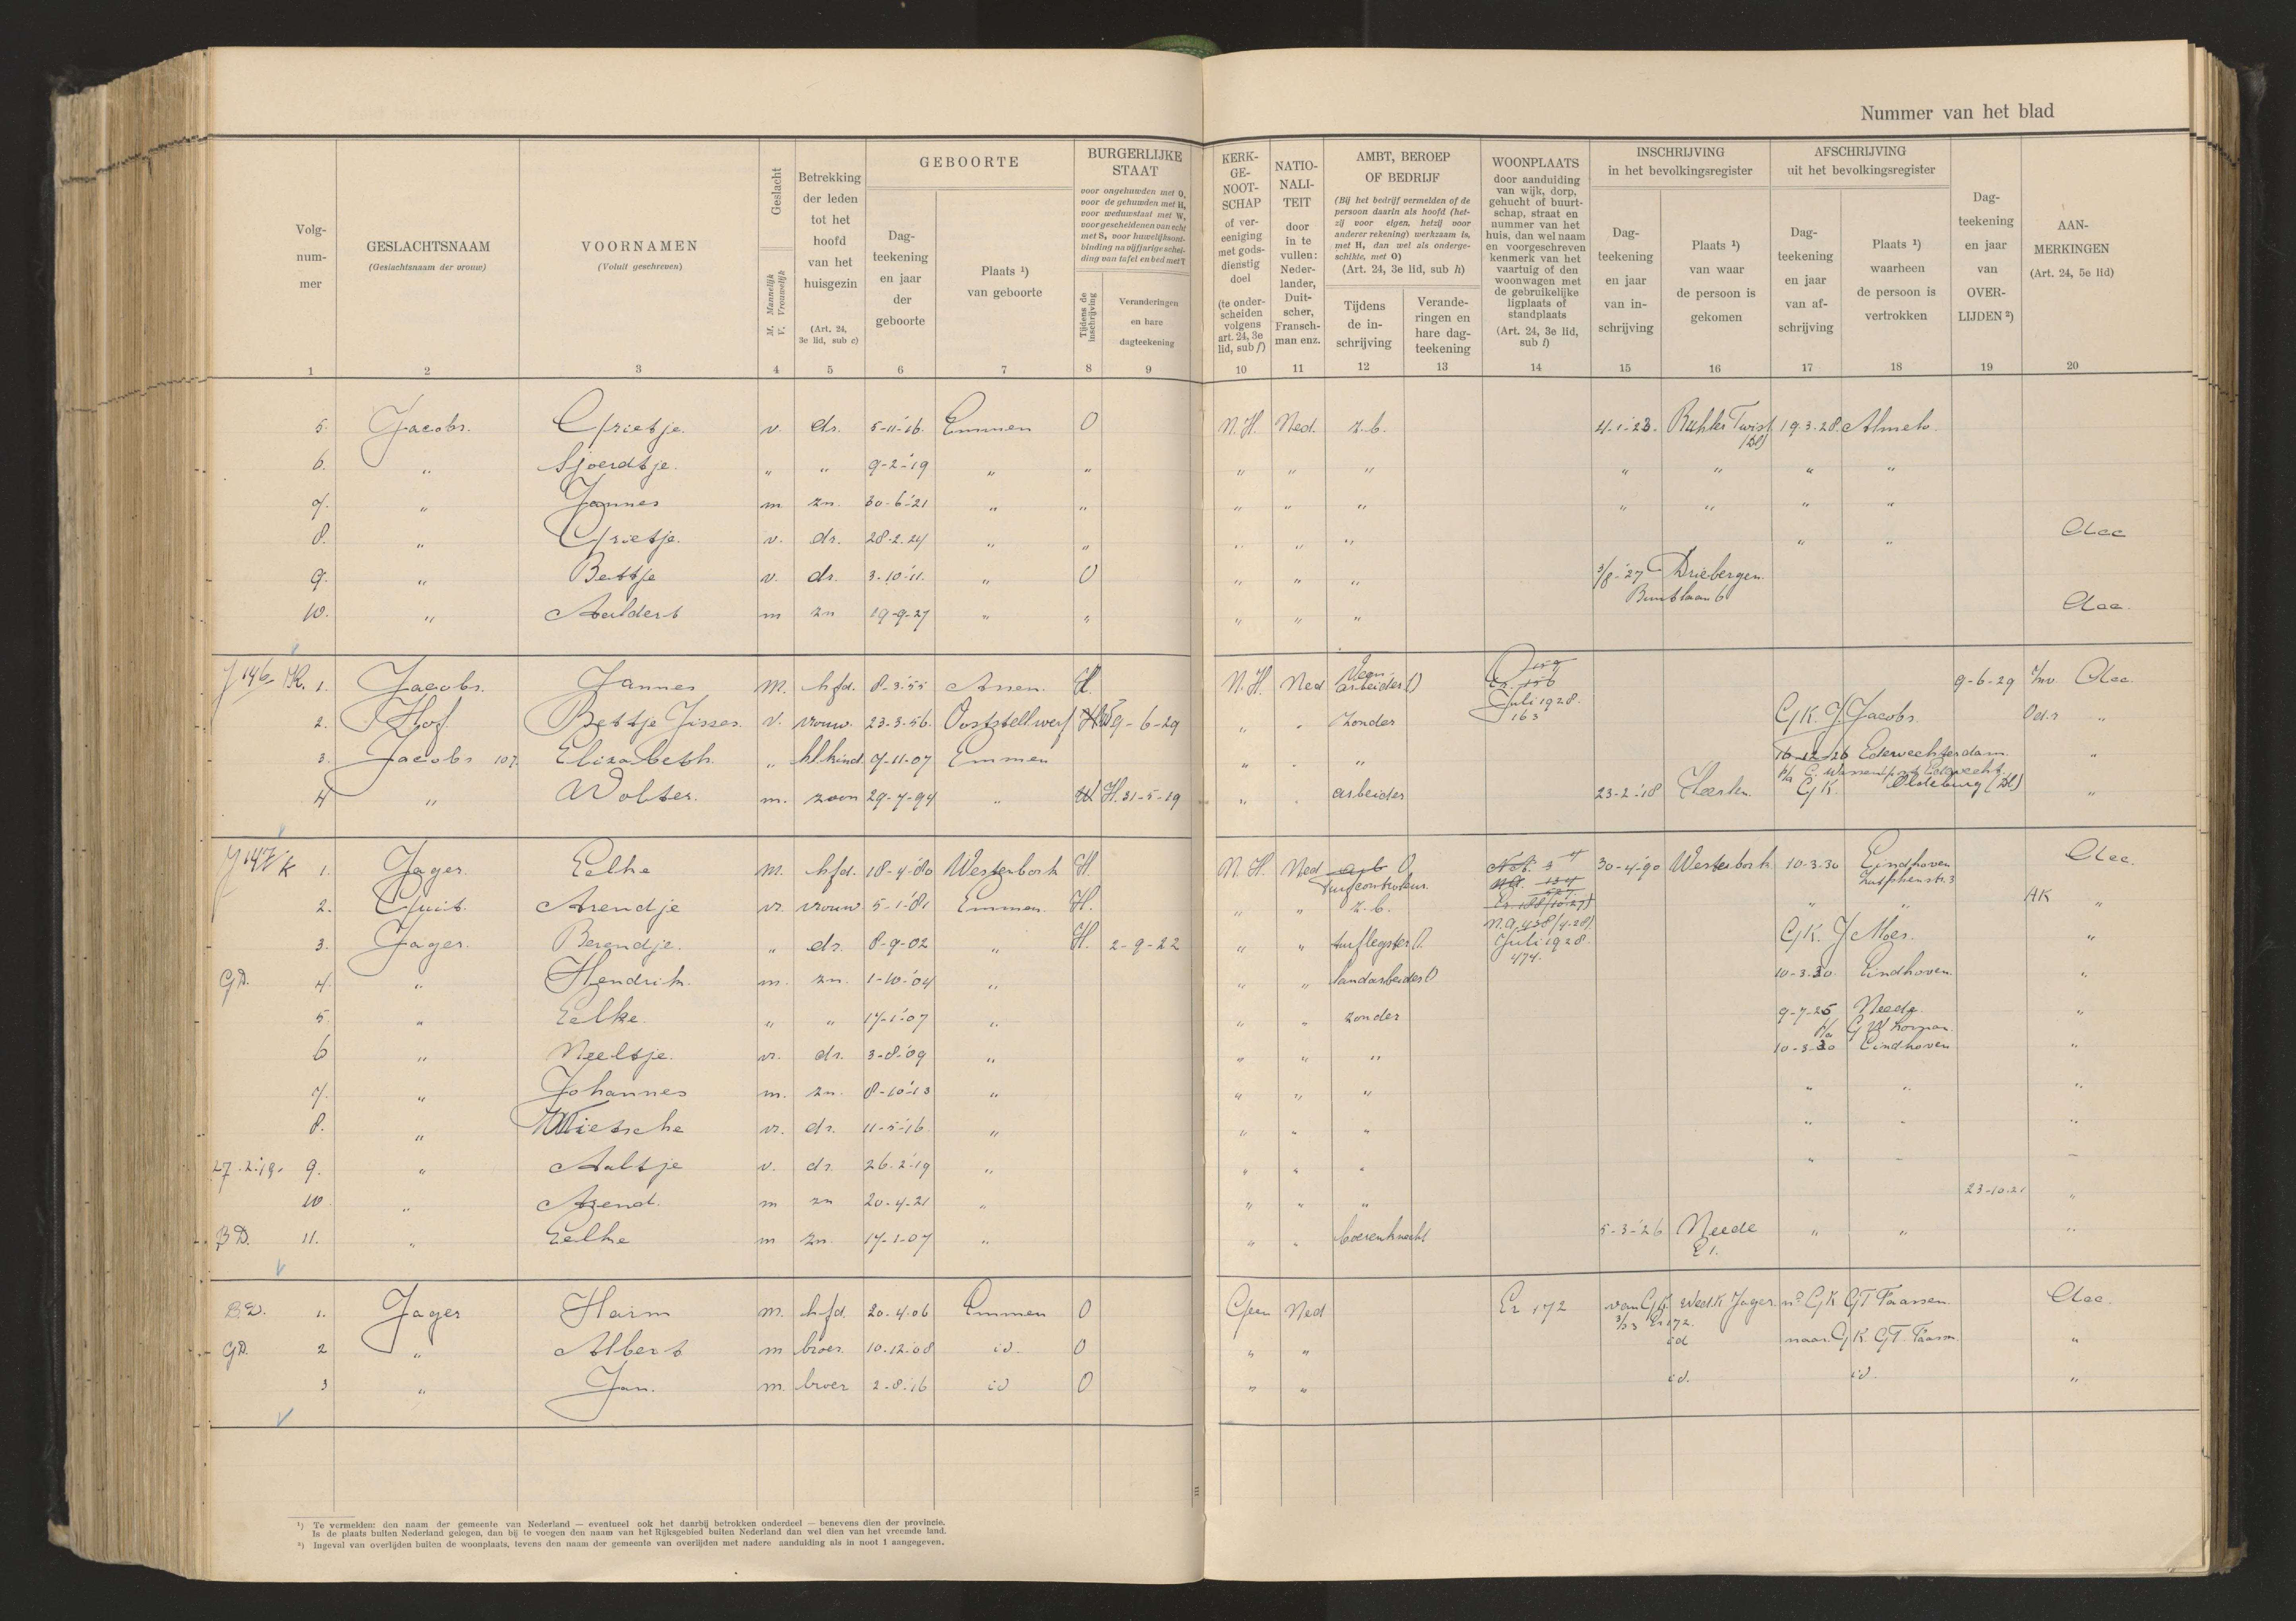 Nummer van het blad
Volgnummer
GESLACHTSNAAM
(Geslachtsnaam der vrouw)
VOORNAMEN
(Voluit geschreven)
Geslacht
M. Mannelijk
V. Vrouwelijk
Betrekking
der leden
tot het
hoofd
van het
huisgezin
(Art. 24,
3e lid, sub c)
GEBOORTE
Dag-
teekening
en jaar
der
geboorte
Plaats ¹)
van geboorte
BURGERLIJKE
STAAT
voor ongehuwden met O,
voor de gehuwden met H,
voor weduwstaat met W,
voor gescheidenen van echt
met S, voor huwelijksont-
binding na vijfjarige schei-
ding van tafel en bed met T
Tijdens de
inschrijving
Veranderingen
en hare
dagteekening
KERK-
GE-
NOOT-
SCHAP
of ver-
eeniging
met gods-
dienstig
doel
(te onder-
scheiden
volgens
art. 24, 3e
lid, sub f)
NATIO-
NALI-
TEIT
door
in te
vullen:
Neder-
lander,
Duit-
scher,
Fransch-
man enz.
AMBT, BEROEP
OF BEDRIJF
(Bij het bedrijf vermelden of de
persoon daarin als hoofd (het-
zij voor eigen, hetzij voor
anderer rekening) werkzaam is,
met H, dan wel als onderge-
schikte, met O)
(Art. 24, 3e lid, sub h)
Tijdens
de in-
schrijving
Verande-
ringen en
hare dag-
teekening
WOONPLAATS
door aanduiding
van wijk, dorp,
gehucht of buurt-
schap, straat en
nummer van het
huis, dan wel naam
en voorgeschreven
kenmerk van het
vaartuig of den
woonwagen met
de gebruikelijke
ligplaats of
standplaats
(Art. 24, 3e lid,
sub i)
INSCHRIJVING
in het bevolkingsregister
Dag-
teekening
en jaar
van in-
schrijving
Plaats ¹)
van waar
de persoon is
gekomen
AFSCHRIJVING
uit het bevolkingsregister
Dag-
teekening
en jaar
van af-
schrijving
Plaats ¹)
waarheen
de persoon is
vertrokken
Dag-
teekening
en jaar
van
OVER-
LIJDEN ²)
AAN-
MERKINGEN
(Art. 24, 5e lid)
1 2 3 4 5 6 7 8 9 10 11 12 13 14 15 16 17 18 19 20
5. Jacobs. Grietje. v. dr. 5-11-'16. Emmen O N.H. Ned. z.b. 4-1-23. Twist 19.3.28. Almelo.
6. " Sjoerdtje. " " 9-2-'19 " " " " " " " " "
7. " Jannes m zn. 30-6-'21 " " " " " " " " "
8. " Grietje. v. dr. 28-2-24 " " " " " " "
9. " Bettje v. dr. 3-10-'11. " O " " " 3/8-'27 Driebergen.
10. " Aaldert m zn 19-9-27 " " " " "
J 146 K. 1. Jacobs. Jannes M. hfd. 8-3-'55 Assen. H. N.H. Ned Veen-
arbeider O 9-6-29
Juli 1928.
163
2. Hof Bettje Jisses. v. vrouw. 23-3-56. Ooststellwerf W 9-6-29 " " zonder GK. J Jacobs. "
3. Jacobs 107. Elizabeth. " kl.kind. 7-11-07 Emmen " " " 16-12-26 Edewechterdam. "
4 " Wolter. m. zoon 29-7-94 " H. 31-5-19 " " arbeider 23-2-'18 Heerlen. GK. Oldeburg (Dl) "
J 147 K 1. Jager. Eelke M. hfd. 18-4-'80 Westerbork H. N.H. Ned arb O 30-4-'90 Westerbork 10-3-30 Eindhoven
Turfcontroleur. Zutphenstr. 3
2. Guit. Arendje vr. vrouw. 5-1-'81 Emmen. H. " " z.b. " " AK "
3. Jager. Berendje. " dr. 8-9-02 " H. 2-9-22 " " turflegster O. Juli 1928. GK. J Moes. "
474.
GD. 4. " Hendrik. m. zn. 1-10-'04 " " " landarbeider O 10-3-30. Eindhoven. "
5. " Eelke. " " 17-1-'07 " " " zonder 9-7-25 Neede. "
6 " Neeltje. vr. dr. 3-8-'09 " " " " 10-3-30 Eindhoven "
7. " Johannes m. zn. 8-10-'13 " " " " " " "
8. " Wietsche vr. dr. 11-5-'16. " " " " " " "
27-2-'19. 9. " Aaltje v. dr. 26-2-'19 " " " " " " "
10 " Arend. m zn 20-4-21 " " " " 23-10-21 "
BD. 11. " Eelke m zn. 17-1-07 " " " boerenknecht 5-3-'26 Neede " " "
E 1.
B.D. 1. Jager Harm m. hfd. 20-4-06 Emmen O Geen Ned Er 172 van GK. Wed. K Jager. GK GT Faassen.
Er 172.
GD. 2 " Albert m broer. 10-12-08 id. O " " id naar GK. GT. "
3 " Jan. m. broer 2-8-16 id O " " id. id. "
¹) Te vermelden: den naam der gemeente van Nederland — eventueel ook het daarbij betrokken onderdeel — benevens dien der provincie.
Is de plaats buiten Nederland gelegen, dan bij te voegen den naam van het Rijksgebied buiten Nederland dan wel dien van het vreemde land.
²) Ingeval van overlijden buiten de woonplaats, tevens den naam der gemeente van overlijden met nadere aanduiding als in noot 1 aangegeven.